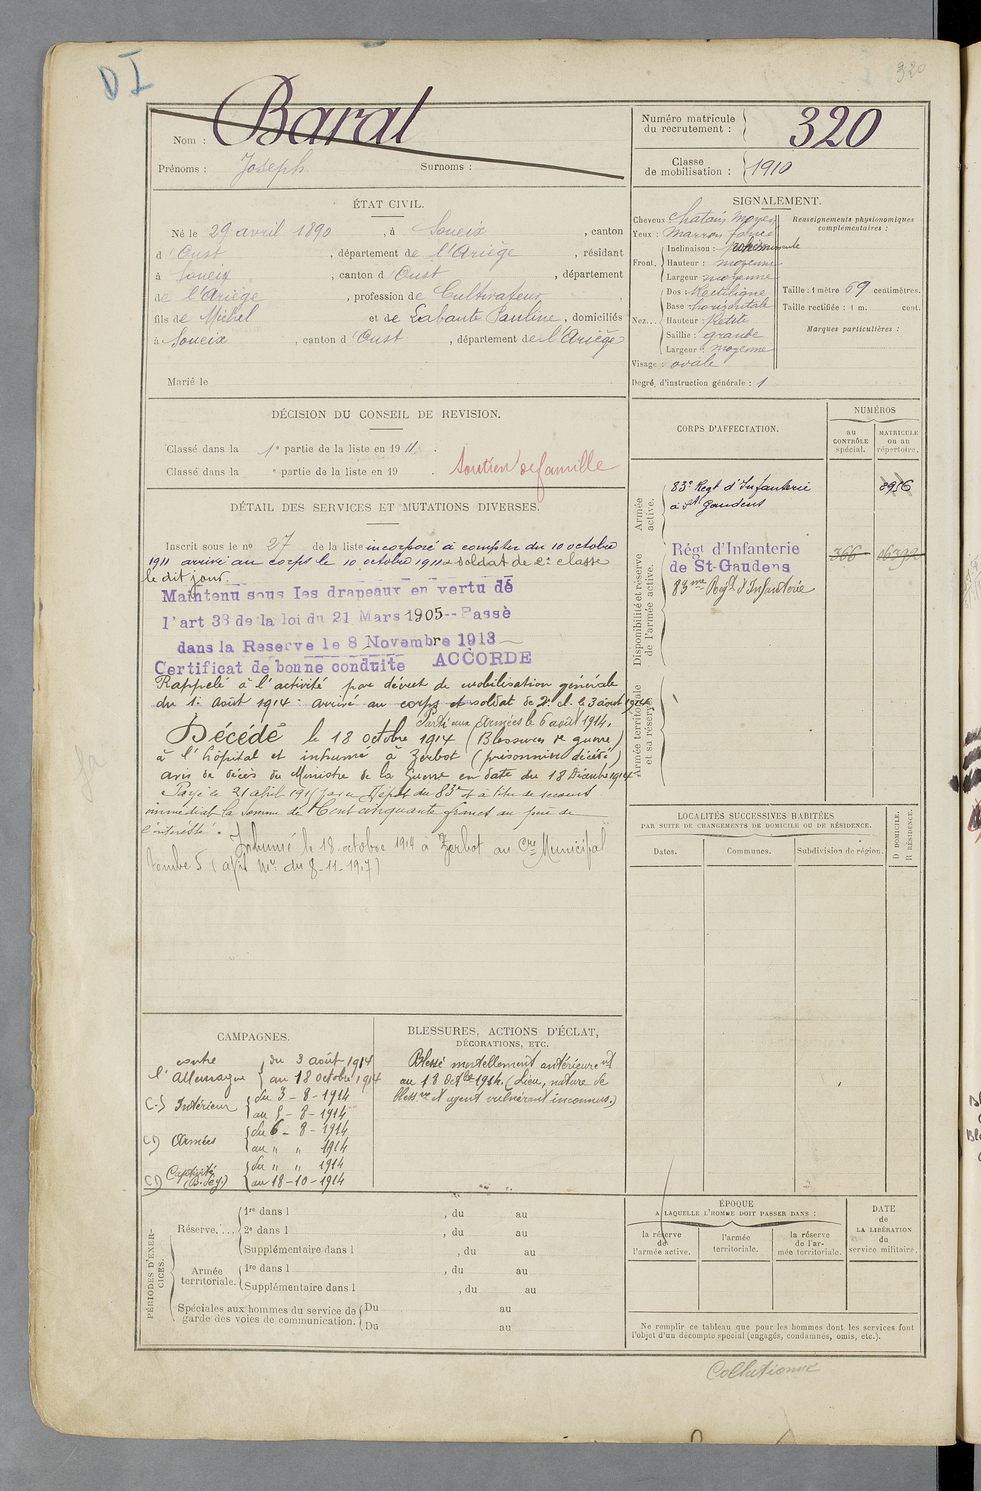 DI
320
Nom : Baral
Prénoms : Joseph Surnoms :
Numéro matricule du recrutement : 320
Classe de mobilisation : 1910
ÉTAT CIVIL.
Né le 29 avril 1890, à Soueix, canton
d'Oust, département de l'Ariège, résidant
à Soueix, canton d'Oust, département
de l'Ariège, profession de Cultivateur,
fils de Michel et de Labante Pauline, domiciliés
à Soueix, canton d'Oust, département de l'Ariège
Marié le
SIGNALEMENT.
Cheveux chatain moyen
Yeux : marron foncé
Front. Inclinaison : proéminente
Hauteur : moyenne
Largeur moyenne
Nez... Dos : Rectiligne
Base : horizontale
Hauteur : Petite
Saillie : grande
Largeur : moyenne
Visage : ovale
Degré d'instruction générale : 1
Renseignements physionomiques complémentaires :
Taille : 1 mètre 69 centimètres.
Taille rectifiée : 1 m. cent.
Marques particulières :
DÉCISION DU CONSEIL DE REVISION.
Classé dans la 1e partie de la liste en 1911.
Classé dans la e partie de la liste en 19 .
Soutien de famille
DÉTAIL DES SERVICES ET MUTATIONS DIVERSES.
Inscrit sous le no 27 de la liste incorporé à compter du 10 octobre
1911 arrivé au corps le 10 octobre 1911 soldat de 2e classe
le dit jour
Maintenu sous les drapeaux en vertu de
l'art 33 de la loi du 21 Mars 1905--Passé
dans la Reserve le 8 Novembre 1913
Certificat de bonne conduite ACCORDE
Rappelé à l'activité par décret de mobilisation générale
du 1er Août 1914. arrivé au corps et soldat de 2e cl. le 3 août 1914
Parti aux Armées le 6 août 1914.
Décédé le 18 octobre 1914 (Blessures de guerre)
à l'hôpital et inhumé à Zerbot (prisonnier décédé)
avis de décès du Ministre de la Guerre en date du 18 Décembre 1914
Payé le 21 avril 191 par le Dépôt du 83e à titre de secours
immédiat la somme de Cent cinquante francs au père de
l'intéressé.
Inhumé le 18 octobre 1914 à Zerbot au Cre Municipal
tombe 5 (avis Mre du 8-11-1917)
CORPS D'AFFECTATION.
NUMÉROS
au CONTRÔLE spécial.
MATRICULE ou au répertoire.
Armée active.
83e Regt d'Infanterie
à St Gaudens
8956
Disponibilité et réserve de l'armée active.
Régt d'Infanterie
de St-Gaudens
83me Regt d'Infanterie
366
Armée territoriale et sa réserve.
LOCALITÉS SUCCESSIVES HABITÉES
PAR SUITE DE CHANGEMENTS DE DOMICILE OU DE RÉSIDENCE.
Dates.
Communes.
Subdivision de région.
D DOMICILE.
R RÉSIDENCE.
CAMPAGNES.
contre l'Allemagne du 3 août 1914
au 18 octobre 1914
C-S) Intérieur du 3-8-1914
au 5-8-1914
C1) Armées du 6-8-1914
au " " 1914
C1) Captivité du " " 1914
au 18-10-1914
BLESSURES, ACTIONS D'ÉCLAT,
DÉCORATIONS, ETC.
Blessé mortellement antérieuremt
au 18 octobre 1914. (Lieu, nature de
blessure et agent vulnérant inconnus.)
PÉRIODES D'EXERCICES.
Réserve. ... 1re dans l , du au
2e dans l , du au
Supplémentaire dans l , du au
Armée territoriale. 1re dans l , du au
Supplémentaire dans l , du au
Spéciales aux hommes du service de garde des voies de communication. Du au
Du au
ÉPOQUE
A LAQUELLE L'HOMME DOIT PASSER DANS :
la réserve de l'armée active.
l'armée territoriale.
la réserve de l'armée territoriale.
DATE de LA LIBÉRATION du service militaire.
Ne remplir ce tableau que pour les hommes dont les services font
l'objet d'un décompte spécial (engagés, condamnés, omis, etc.).
Collationné